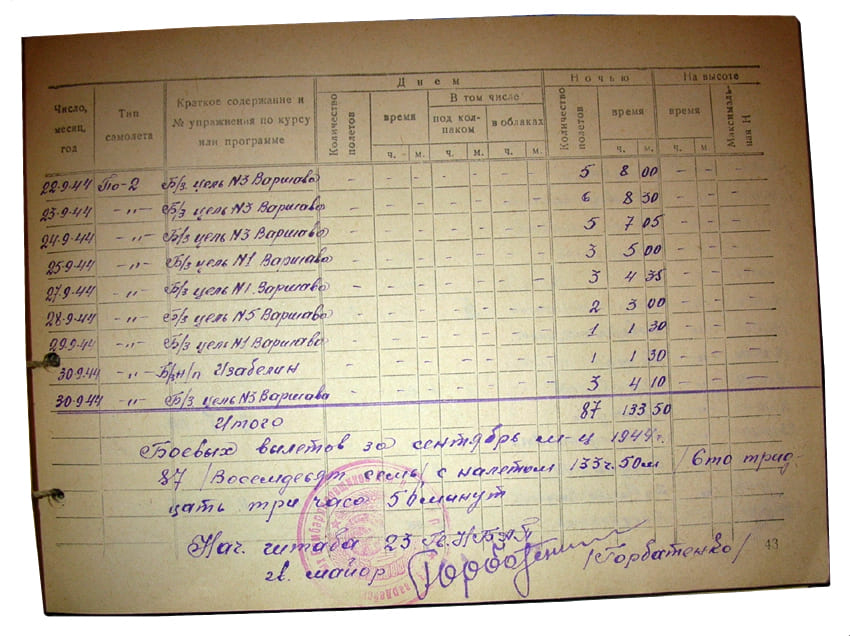 Число, месяц, год | Тип самолета | Краткое содержание и № упражнения по курсу или программе | Днем | Ночью | На высоте
Количество полетов | время | В том числе | Количество полетов | время | время | Максимальная Н
под колпаком | в облаках
ч. м. | ч. м. | ч. м. | ч. м. | ч. м.
22-9-44 По-2 Б/з цель N3 Варшава - - - - - - - 5 8 00 - - -
23-9-44 -"- Б/з цель N3 Варшава - - - - - - - 6 8 30 - - -
24-9-44 -"- Б/з цель N3 Варшава - - - - - - - 5 7 05 - - -
25-9-44 -"- Б/з цель N1 Варшава - - - - - - - 3 5 00 - - -
27-9-44 -"- Б/з цель N1 Варшава - - - - - - - 3 4 35 - - -
28-9-44 -"- Б/з цель N5 Варшава - - - - - - - 2 3 00 - - -
29-9-44 -"- Б/з цель N1 Варшава - - - - - - - 1 1 30 - - -
30-9-44 -"- Б/з н/п Изабелин - - - - - - - 1 1 30 - - -
30-9-44 -"- Б/з цель N3 Варшава - - - - - - - 3 4 10 - - -
Итого 87 133 50
Боевых вылетов за сентябрь м-ц 1944г.
87 /Восемдесят семь/ с налетом 133ч. 50м /Сто трид-
цать три часа 50 минут
Нач. штаба 23 Гв.НБАП
гв. майор Горбатенко /Горбатенко/
43